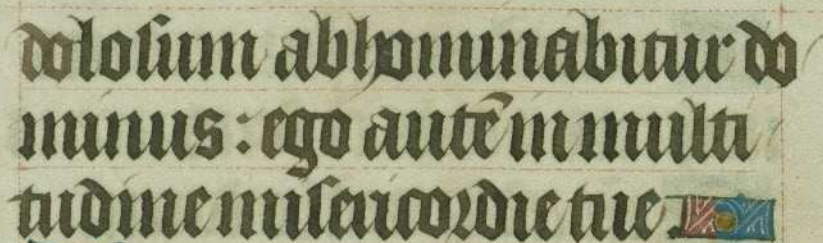 dolosum abhominabitur do
minus : ego autē in multi
tudine misericordie tue.